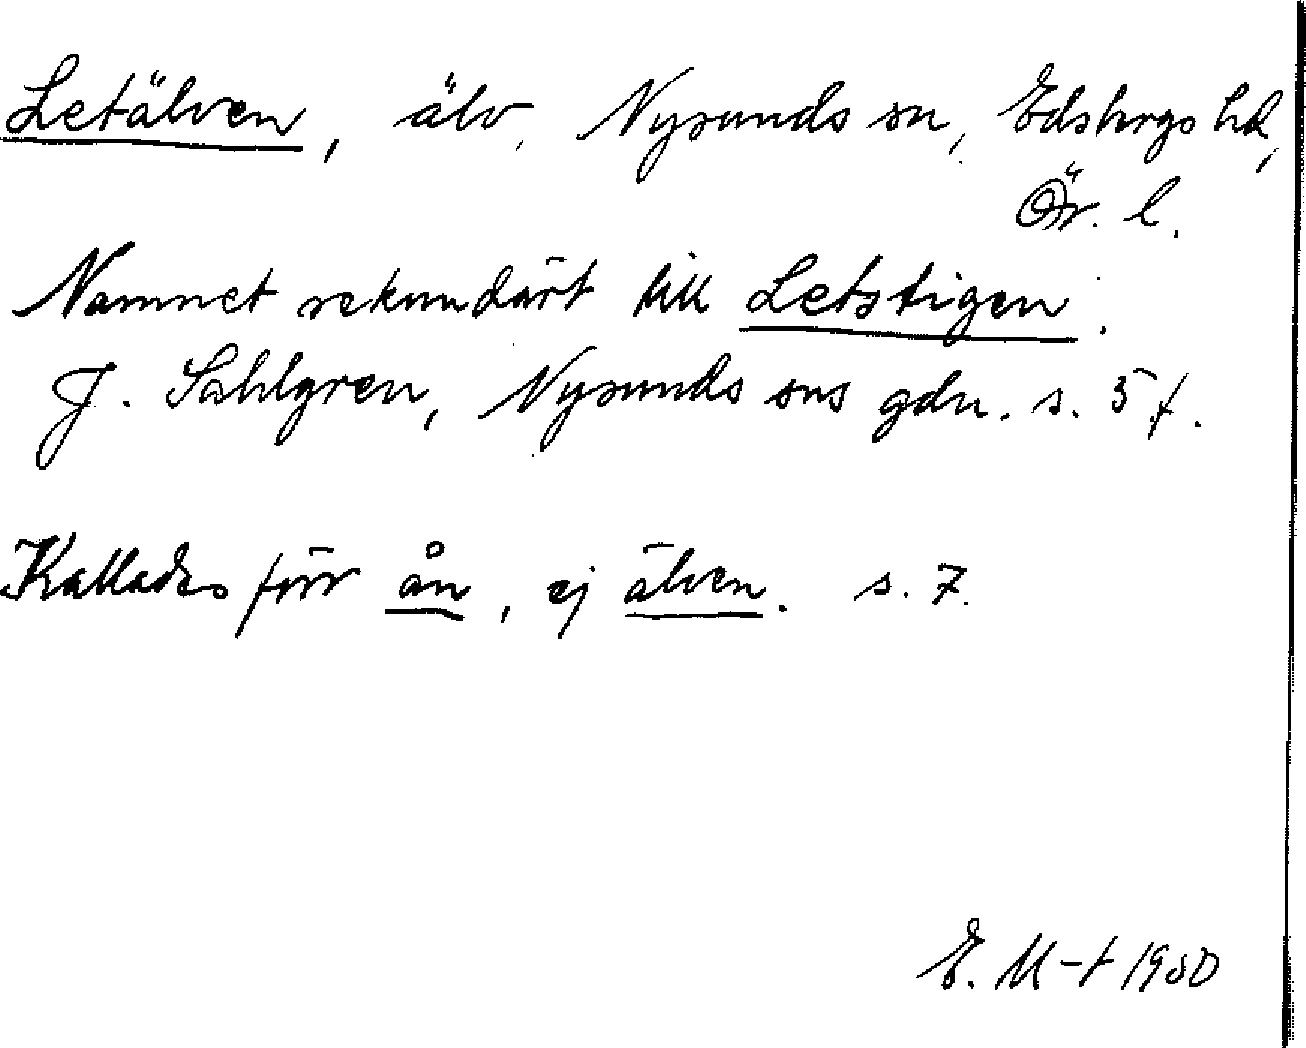 Letälven, älv, Nysunds sn, Edsbergs hd,
Ör. l.
Namnet sekundärt till Letstigen.
J. Sahlgren, Nysunds sns gdn. s. 5 f.
Kallades förr ån, ej älven. s. 7.
E. M-t 1980